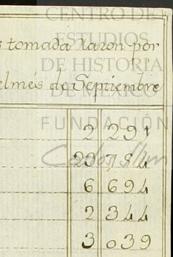 CENTRO DE
ESTUDIOS
DE HISTORIA
DE MÉXICO
FUNDACIÓN
Carlos Slim
tomada Razon por
elmes de Septiembre
2 291
6 694
2 344
3 039